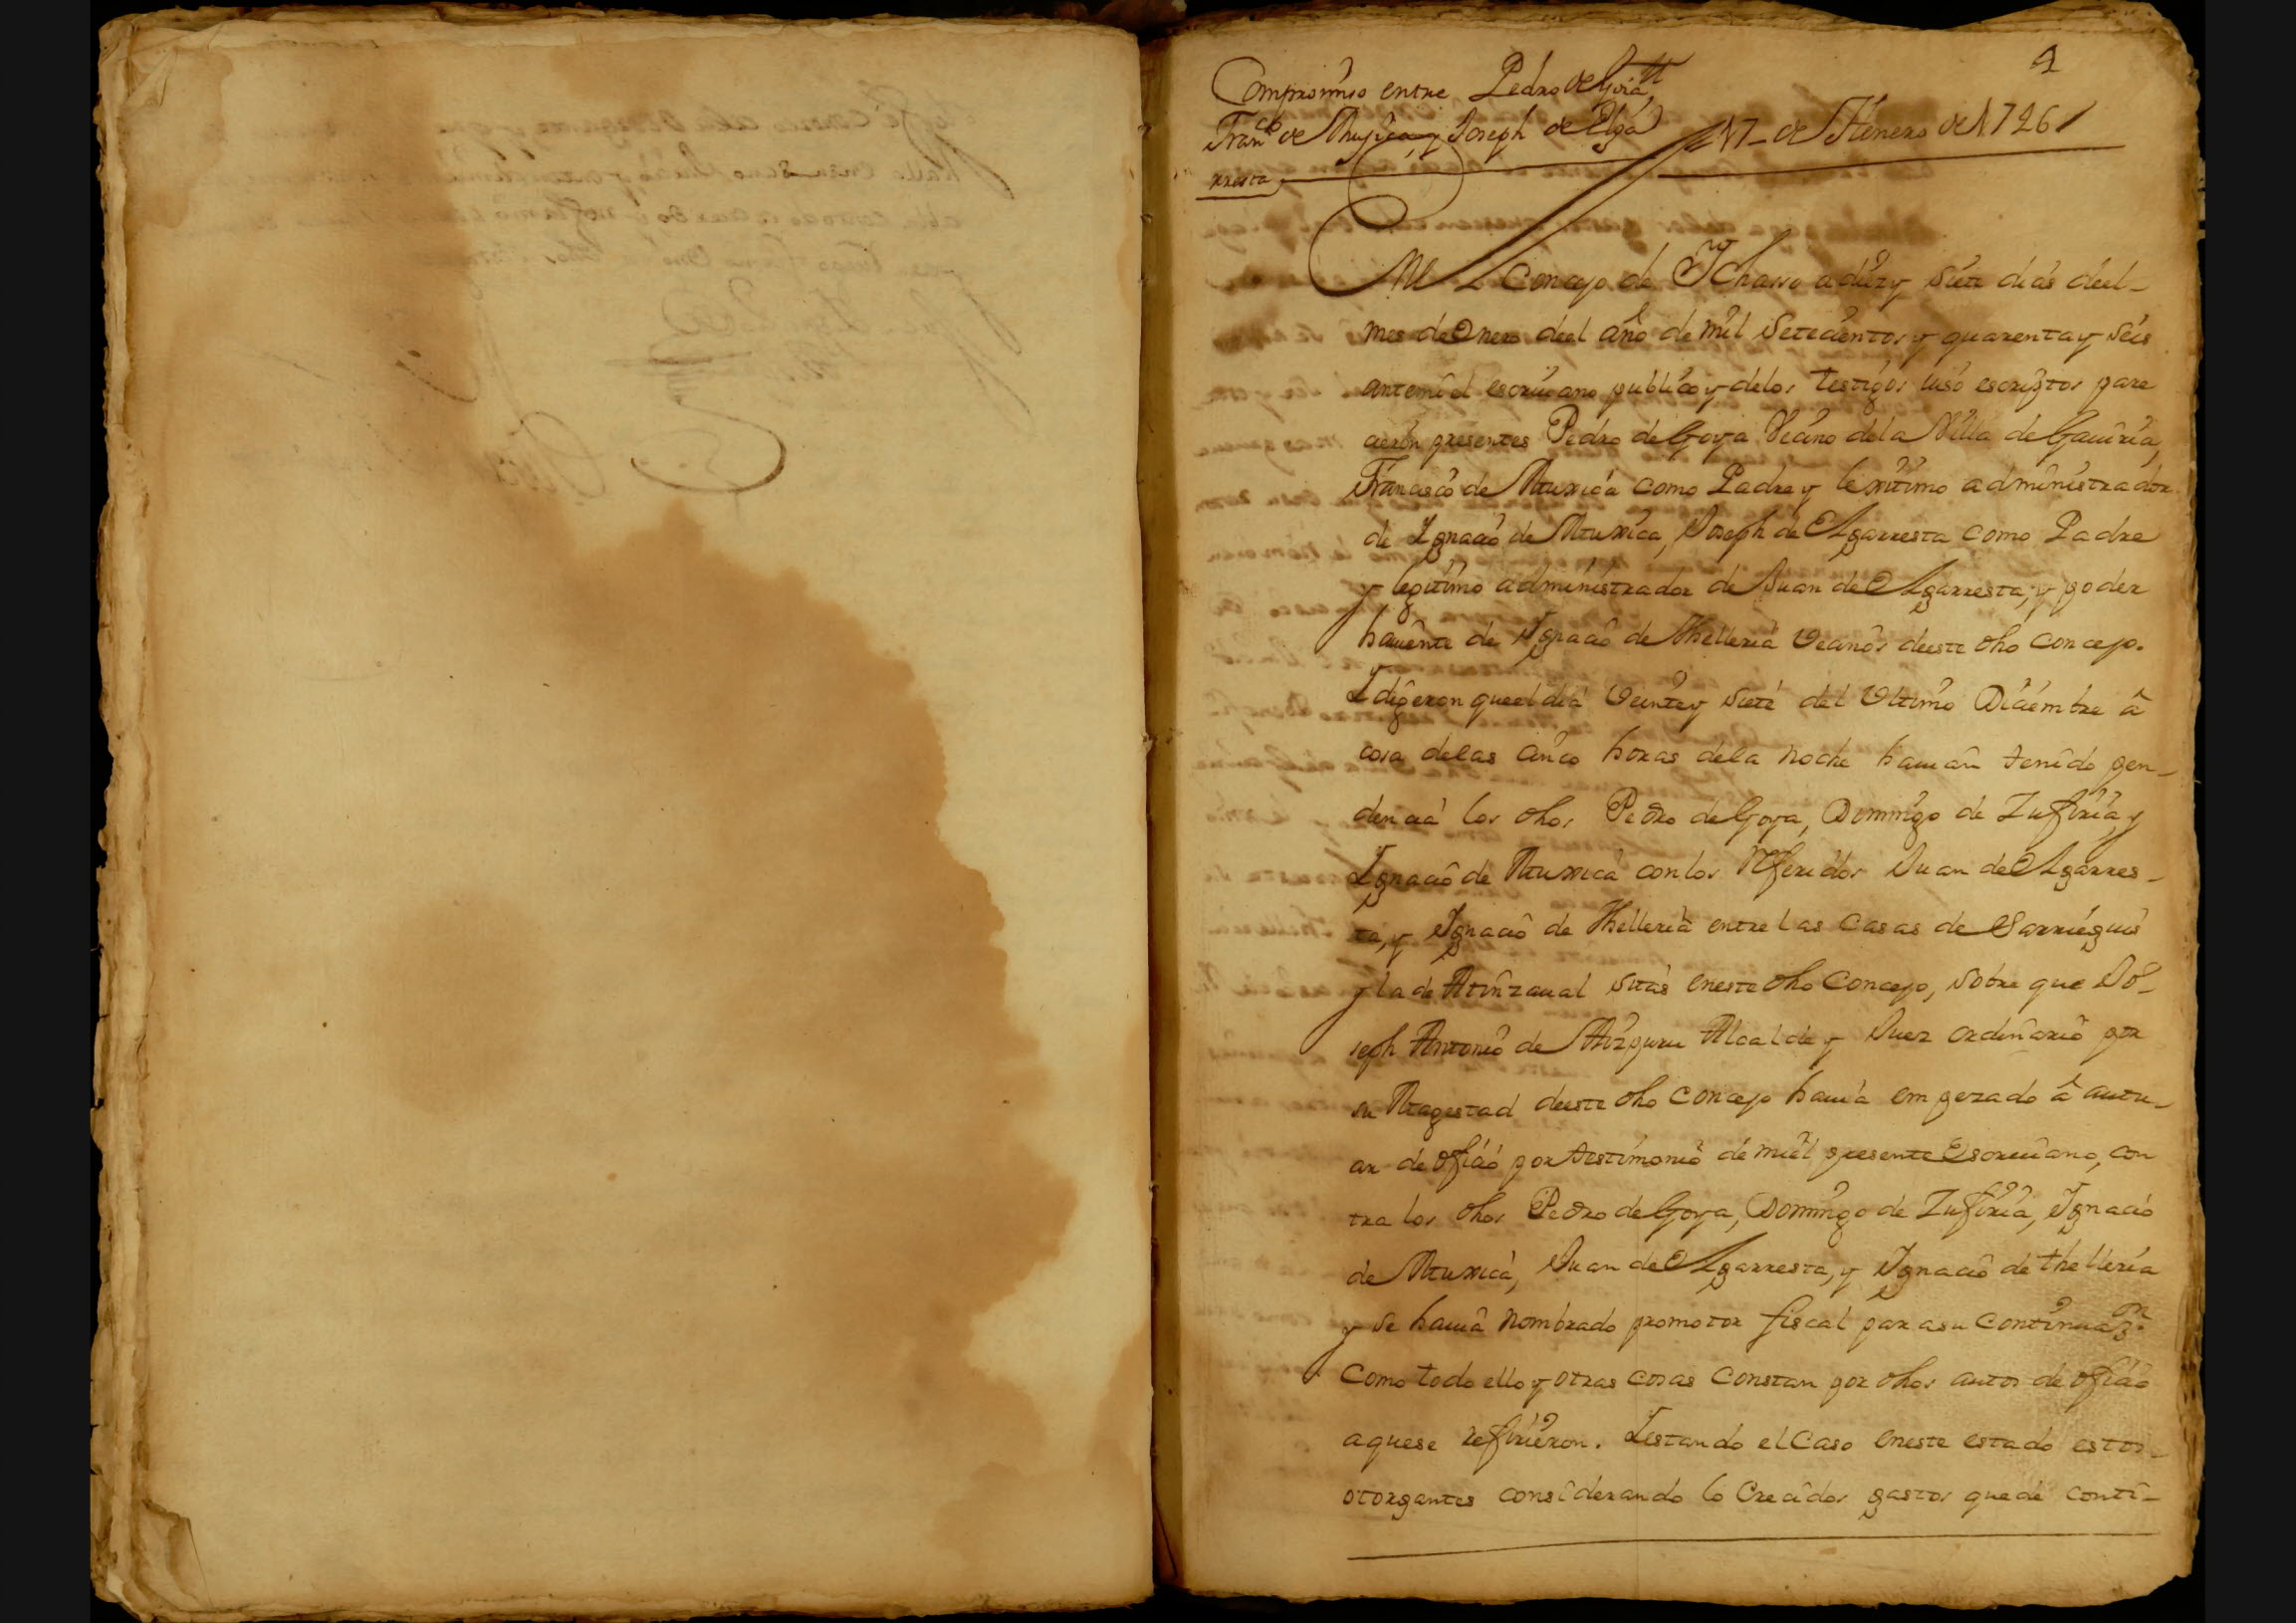 2
Compromiso entre Pedro de Goia
Fran.co de Mujica, y Joseph de Elga
rresta
17 de Henero de 1746
En el Concejo de Ychasso a diez y siete dias deel
mes de Enero deel año de mil setecientos y quarenta y seis
antemi el escriuano publico y delos testigos iuso escriptos pare
cieron presentes Pedro de Goya Vecino dela Villa de Gauiria,
Francisco de Muxica como Padre y lexitimo administrador
de Ignacio de Muxica, Joseph de Elgarresta como Padre
y legitimo administrador de Juan de Elgarresta, y poder
hauiente de Ignacio de Thelleria Vecinos deeste dho concejo.
Y digeron que el dia Veinte y siete del Ultimo Diciembre â
cosa delas cinco horas dela noche hauian tenido pen-
dencia los dhos Pedro de Goya, Domingo de Zufiria, y
Ignacio de Muxica con los Referidos Juan de Elgarres-
ta, y Ignacio de Thelleria entre las Casas de Sarriegui
y la de Atinzaual sitas eneste dho Concejo, sobre que Jo-
seph Antonio de Aizpuru Alcalde y Juez ordinario por
su Magestad deeste dho Concejo hauia empezado â autu-
ar de oficio por testimonio de mi el presente Escriuano, con
tra los dhos Pedro de Goya, Domingo de Zufiria, Ignacio
de Muxica, Juan de Elgarresta, y Ignacio de thelleria
y se hauia nombrado promotor fiscal para su continuaz.on
Como todo ello y otras cosas constan por dhos autos de oficio
aque se refirieron. Y estando el Caso eneste estado estos
otorgantes considerando lo Crecidos gastos que de conti-